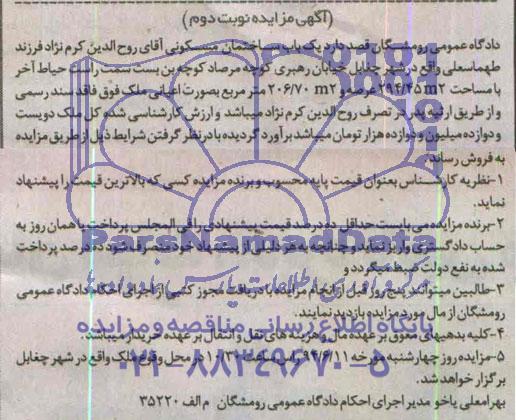 (آگهی مزایده نوبت دوم)
دادگاه عمومی رومشگان قصد دارد یک باب ساختمان مسکونی آقای روح الدین کرم نژاد فرزند
طهماسعلی واقع در شهر چغابل خیابان رهبری کوچه مرصاد کوچه بن بست سمت راست حیاط آخر
با مساحت ۲۹۴/۴۵ m۲ عرصه و ۲۰۶/۷۰ m۲ متر مربع بصورت اعیانی ملک فوق فاقد سند رسمی
و از طریق ارثیه پدر در تصرف روح الدین کرم نژاد میباشد و ارزش کارشناسی شده کل ملک دویست
و دوازده میلیون و دوازده هزار تومان میباشد برآورد گردیده با در نظر گرفتن شرایط ذیل از طریق مزایده
به فروش رساند:
۱-نظریه کارشناس بعنوان قیمت پایه محسوب و برنده مزایده کسی که بالاترین قیمت را پیشنهاد
نماید.
۲-برنده مزایده می بایست حداقل ده درصد قیمت پیشنهادی را فی المجلس پرداخت یا همان روز به
حساب دادگستری واریز نماید و چنانچه به هر دلیلی از پیشنهاد خود منصرف شود ده درصد پرداخت
شده به نفع دولت ضبط میگردد و
۳-طالبین میتوانند پنج روز قبل از انجام مزایده با دریافت مجوز کتبی از اجرای احکام دادگاه عمومی
رومشگان از مال مورد مزایده بازدید نمایند.
۴-کلیه بدهیهای معوق بر عهده مال و هزینه های نقل و انتقال بر عهده خریدار میباشد.
۵-مزایده روز چهارشنبه مورخه ۹۴/۶/۱۱ راس ساعت ۱۰/۳۰ در محل وقوع ملک واقع در شهر چغابل
برگزار خواهد شد.
بهرامعلی یاخو مدیر اجرای احکام دادگاه عمومی رومشگان م الف ۳۵۲۲۰
ParsNamadData
پایگاه اطلاع رسانی مناقصه و مزایده
۰۲۱-۸۸۳۴۹۶۷۰-۵